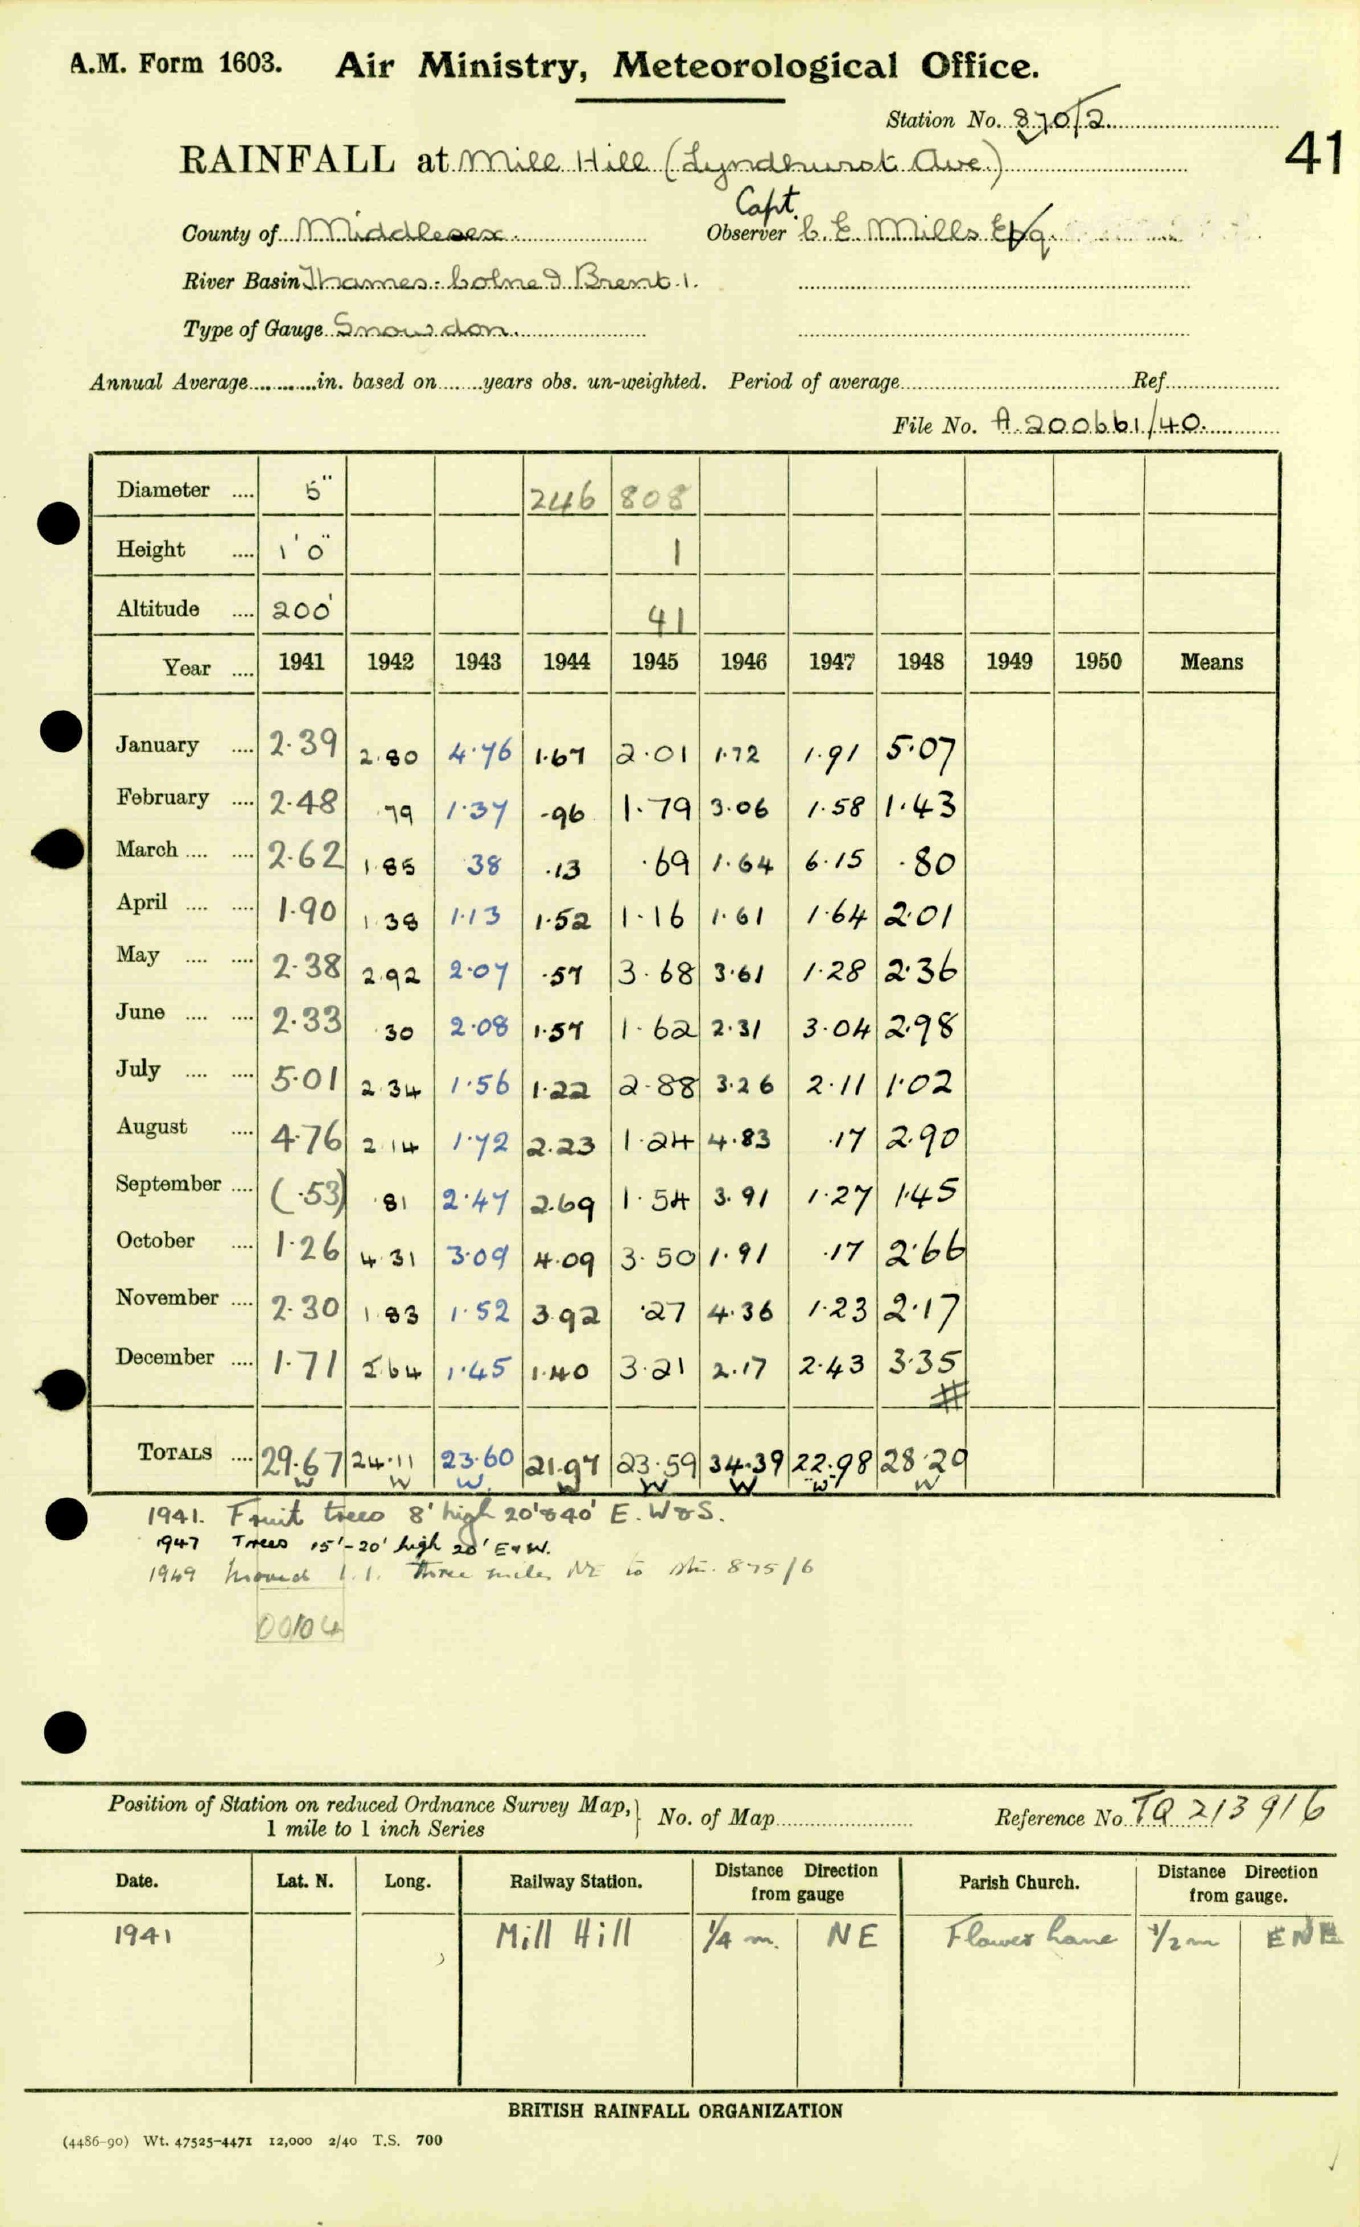 A.M. Form 1603. Air Ministry, Meteorological Office.
Station No. 870/2
41
RAINFALL at Mill Hill (Lyndhurst Ave.)
Capt.
County of Middlesex. Observer C. E. Mills Esq.
River Basin Thames: Colne & Brent 1.
Type of Gauge Snowdon.
Annual Average in. based on years obs. un-weighted. Period of average Ref
File No. A.200661/40.
Diameter .... 5" 246 808
Height .... 1'0" 1
Altitude .... 200' 41
Year .... 1941 1942 1943 1944 1945 1946 1947 1948 1949 1950 Means
January .... 2.39 2.80 4.76 1.67 2.01 1.72 1.91 5.07
February .... 2.48 .79 1.37 .96 1.79 3.06 1.58 1.43
March .... .... 2.62 1.85 .38 .13 .69 1.64 6.15 .80
April .... .... 1.90 1.38 1.13 1.52 1.16 1.61 1.64 2.01
May .... .... 2.38 2.92 2.07 .57 3.68 3.61 1.28 2.36
June .... .... 2.33 .30 2.08 1.57 1.62 2.31 3.04 2.98
July .... .... 5.01 2.34 1.56 1.22 2.88 3.26 2.11 1.02
August .... 4.76 2.14 1.72 2.23 1.24 4.83 .17 2.90
September .... (.53) .81 2.47 2.69 1.54 3.91 1.27 1.45
October .... 1.26 4.31 3.09 4.09 3.50 1.91 .17 2.66
November .... 2.30 1.83 1.52 3.92 .27 4.36 1.23 2.17
December .... 1.71 2.64 1.45 1.40 3.21 2.17 2.43 3.35
#
TOTALS .... 29.67 24.11 23.60 21.97 23.59 34.39 22.98 28.20
W W W W W W W W
1941. Fruit trees 8' high 20' & 40' E. W & S.
1947 Trees 15'-20' high 20' E & W.
1949 Moved 1.1. three miles NE to stn. 875/6
00104
Position of Station on reduced Ordnance Survey Map, } No. of Map Reference No. TQ 213 916
1 mile to 1 inch Series
Date. Lat. N. Long. Railway Station. Distance Direction from gauge Parish Church. Distance Direction from gauge.
1941 Mill Hill 1/4 m. NE Flower Lane 1/2 m ENE
BRITISH RAINFALL ORGANIZATION
(4486-90) Wt. 47525-4471 12,000 2/40 T.S. 700